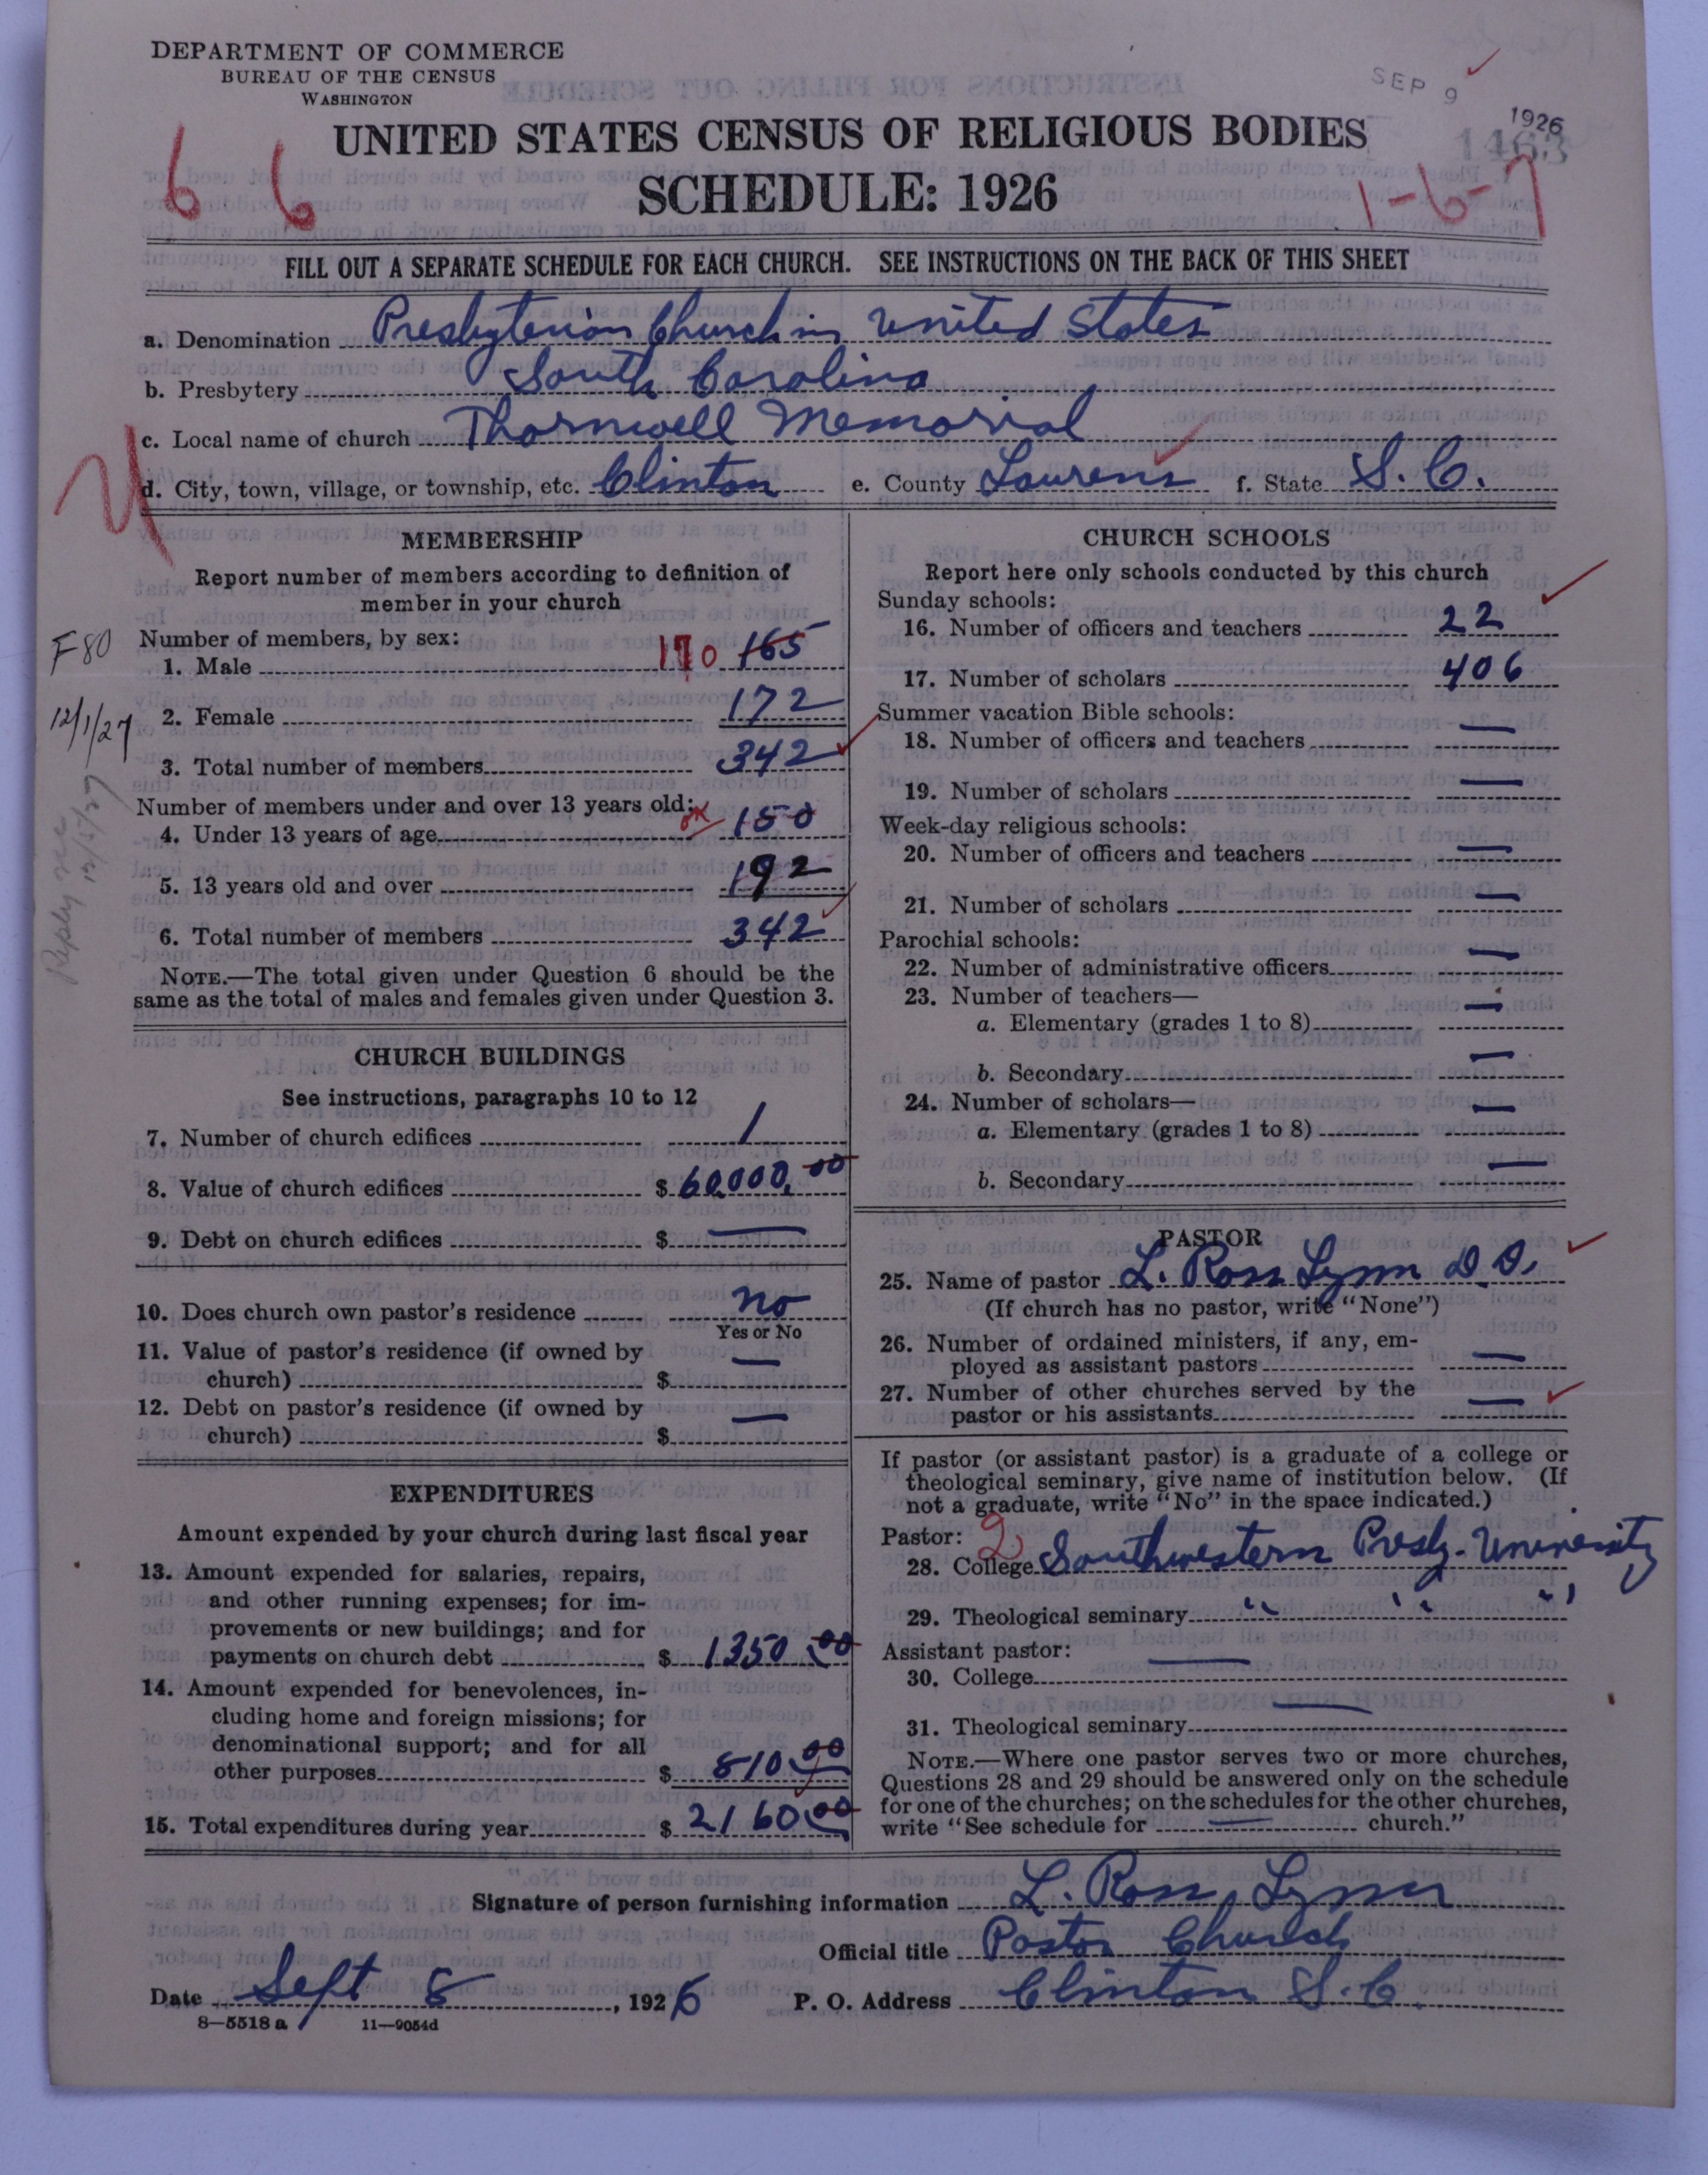 DEPARTMENT OF COMMERCE
BUREAU OF THE CENSUS
WASHINGTON
SEP 9 1926
1463
UNITED STATES CENSUS OF RELIGIOUS BODIES
SCHEDULE: 1926
6 6
1-6-7
FILL OUT A SEPARATE SCHEDULE FOR EACH CHURCH. SEE INSTRUCTIONS ON THE BACK OF THIS SHEET
a. Denomination Presbyterian Church in United States
b. Presbytery South Carolina
c. Local name of church Thornwell Memorial
d. City, town, village, or township, etc. Clinton e. County Laurens f. State S. C.
MEMBERSHIP
Report number of members according to definition of
member in your church
Number of members, by sex:
F80
1. Male 170 165
12/1/27
2. Female 172
3. Total number of members 342
Number of members under and over 13 years old:
4. Under 13 years of age OK 150
5. 13 years old and over 192
Reply rec 12/5/27
6. Total number of members 342
NOTE.—The total given under Question 6 should be the
same as the total of males and females given under Question 3.
CHURCH BUILDINGS
See instructions, paragraphs 10 to 12
7. Number of church edifices 1
8. Value of church edifices $ 60,000.00
9. Debt on church edifices $ —
10. Does church own pastor's residence no
Yes or No
11. Value of pastor's residence (if owned by
church) $ —
12. Debt on pastor's residence (if owned by
church) $ —
EXPENDITURES
Amount expended by your church during last fiscal year
13. Amount expended for salaries, repairs,
and other running expenses; for im-
provements or new buildings; and for
payments on church debt $ 1350.00
14. Amount expended for benevolences, in-
cluding home and foreign missions; for
denominational support; and for all
other purposes $ 810.00
15. Total expenditures during year $ 2160.00
CHURCH SCHOOLS
Report here only schools conducted by this church
Sunday schools:
16. Number of officers and teachers 22
17. Number of scholars 406
Summer vacation Bible schools:
18. Number of officers and teachers —
19. Number of scholars —
Week-day religious schools:
20. Number of officers and teachers —
21. Number of scholars —
Parochial schools:
22. Number of administrative officers —
23. Number of teachers—
a. Elementary (grades 1 to 8) —
b. Secondary —
24. Number of scholars—
a. Elementary (grades 1 to 8) —
b. Secondary —
PASTOR
25. Name of pastor L. Ross Lynn D.D.
(If church has no pastor, write "None")
26. Number of ordained ministers, if any, em-
ployed as assistant pastors —
27. Number of other churches served by the
pastor or his assistants —
If pastor (or assistant pastor) is a graduate of a college or
theological seminary, give name of institution below. (If
not a graduate, write "No" in the space indicated.)
Pastor: 2
28. College Southwestern Presby. University
29. Theological seminary " " "
Assistant pastor:
30. College —
31. Theological seminary —
NOTE.—Where one pastor serves two or more churches,
Questions 28 and 29 should be answered only on the schedule
for one of the churches; on the schedules for the other churches,
write "See schedule for — church."
Signature of person furnishing information L. Ross Lynn
Official title Pastor Church
Date Sept 8, 1926 P. O. Address Clinton S. C.
8—5518 a 11—9054d